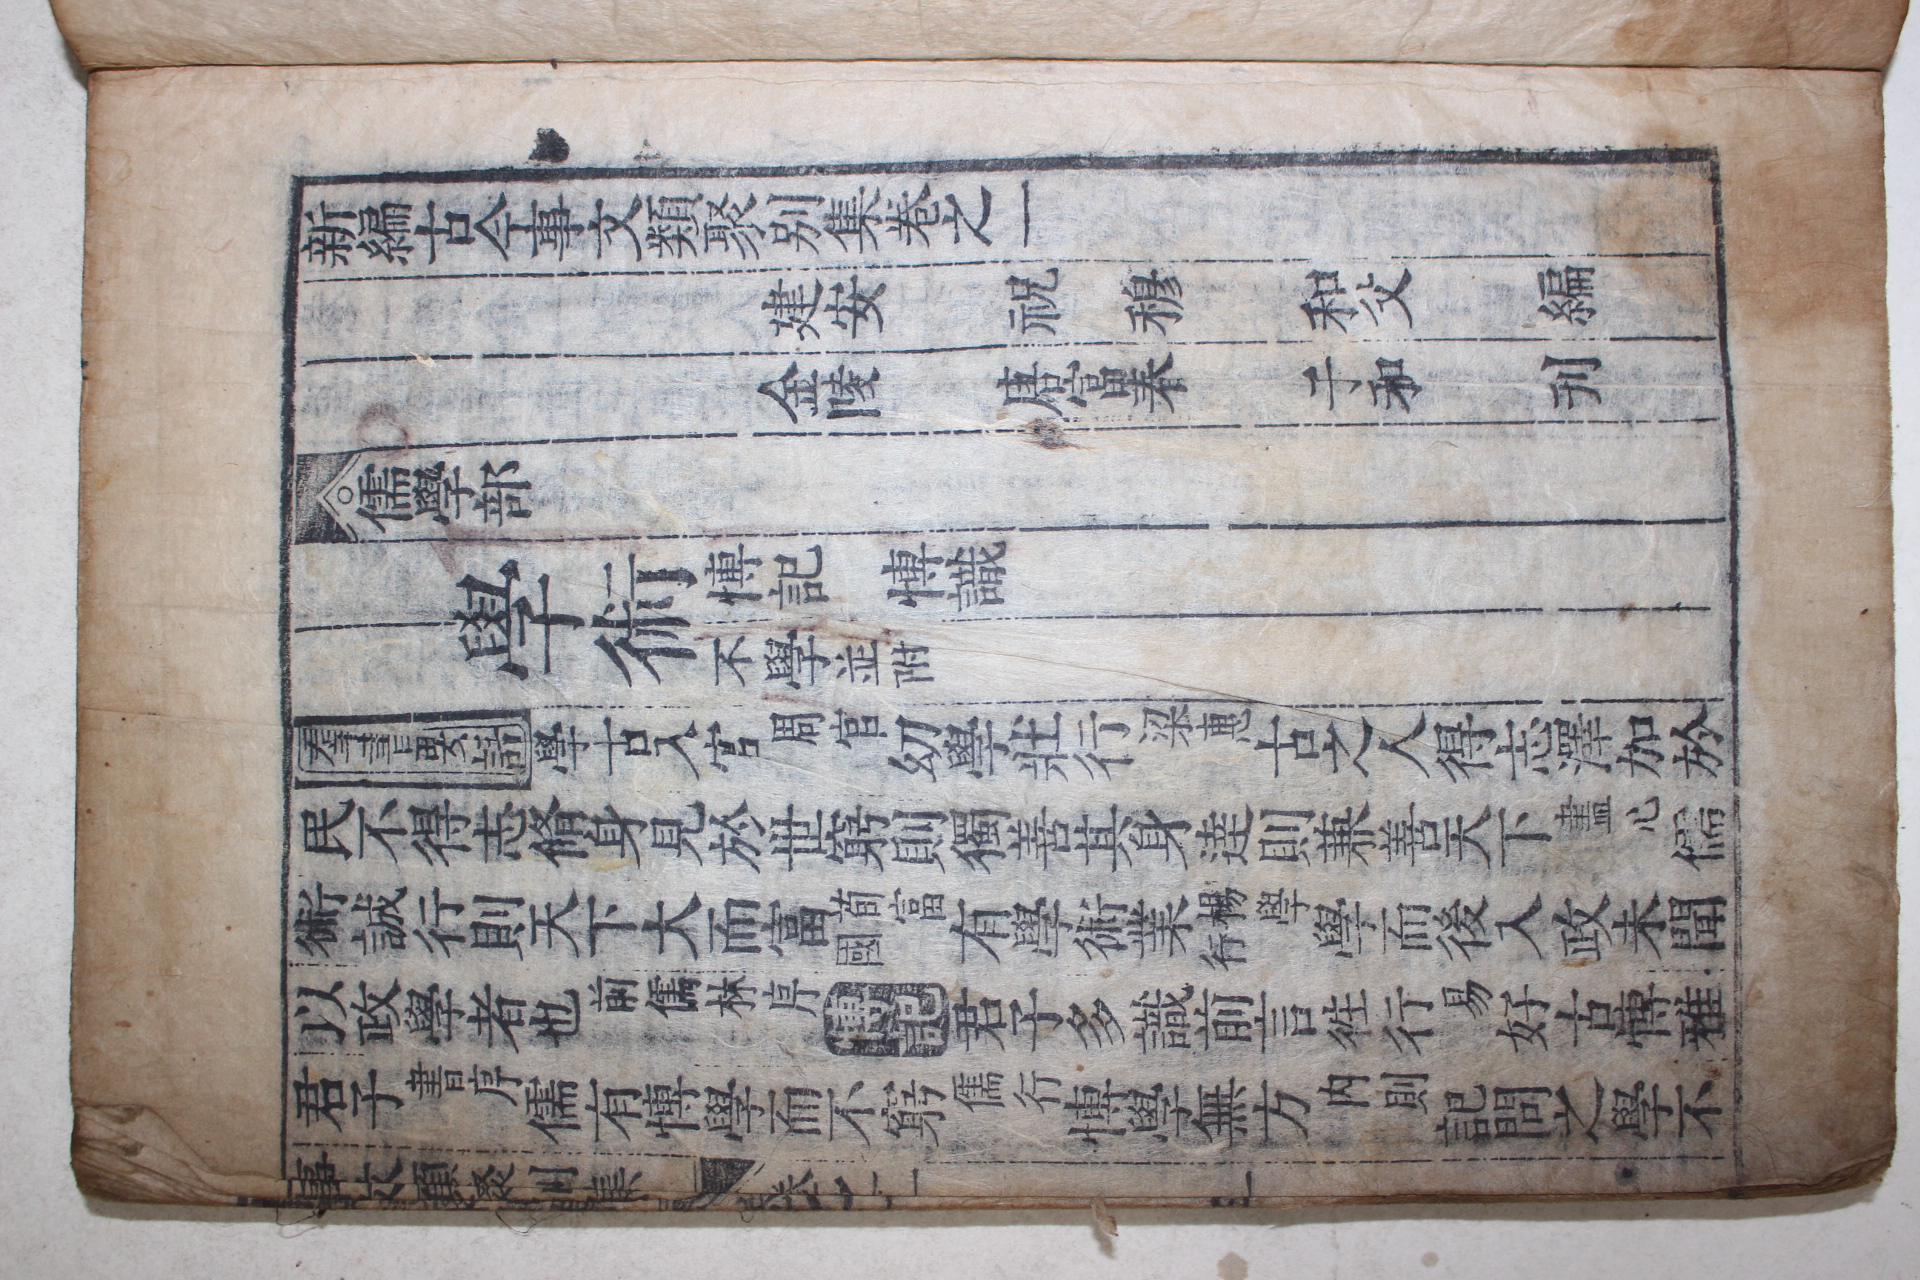 新編古今事文類聚別集卷之一
建安 祝 穆 和父 編
金陵 唐富春 子和 刊
儒學部
學術 博記 博識 不學並附
羣書要語 學古入官 周官 幼學壯行 梁惠 古之人得志澤加於
民不得志脩身見於世窮則獨善其身達則兼善天下 盡心 儒
術誠行則天下大而富 荀富國 有學術業 楊學行 學而後入政未聞
以政學者也 前儒林序 博記 君子多識前言徃行 易 好古博雅
君子 書序 儒有博學而不窮 儒行 博學無方 內則 記問之學不
事文類聚別集 卷之一 一